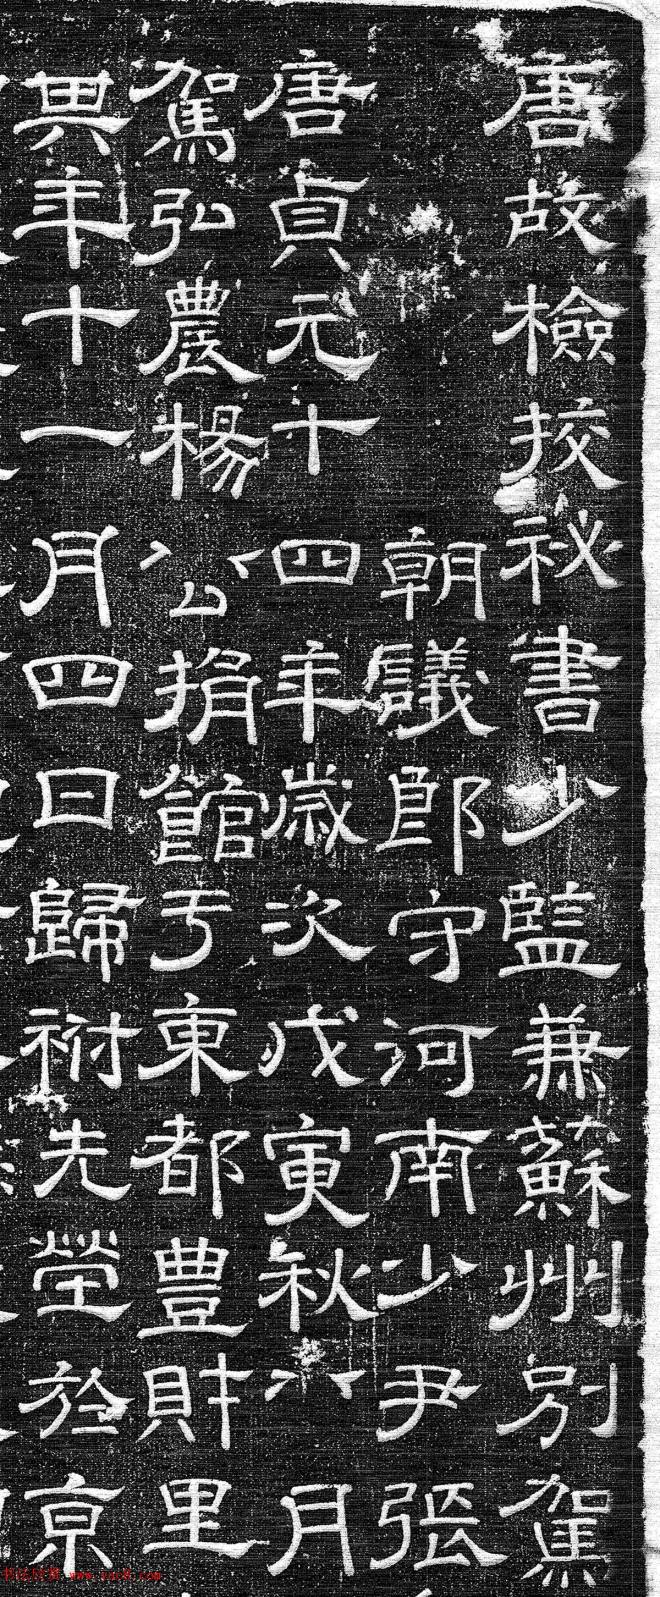 唐故檢挍祕書少監兼蘇州別駕
朝議郎守河南少尹張
唐貞元十四年歲次戊寅秋八月
駕弘農楊公捐館于東都豊財里
異年十一月四日歸祔先塋於京